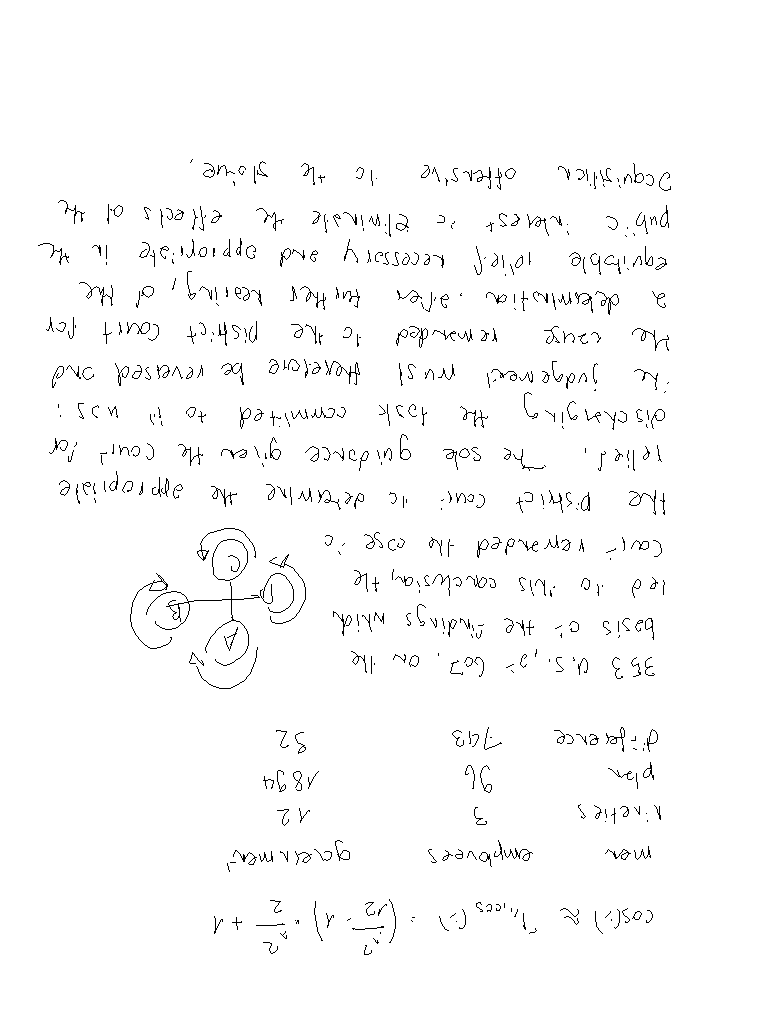 cos(i) ≈ (i²/12 - 1) · i²/2 + 1
men employees government
nineties 3 12
plan 96 1894
difference 743 32
353 U.S., at 607. on the
basis of the findings which
led to this conclusion, the
Court remanded the case to
the District Court to determine the appropriate
relief. The sole guidance given the Court for
discharging the task committed to it was:
the judgement must therefore be reversed and
the cause remanded to the District Court for
a determination, after further hearing, of the
equitable relief necessary and appropriate in the
public interest to eliminate the effects of the
acquisition offensive to the
A
D
B
C